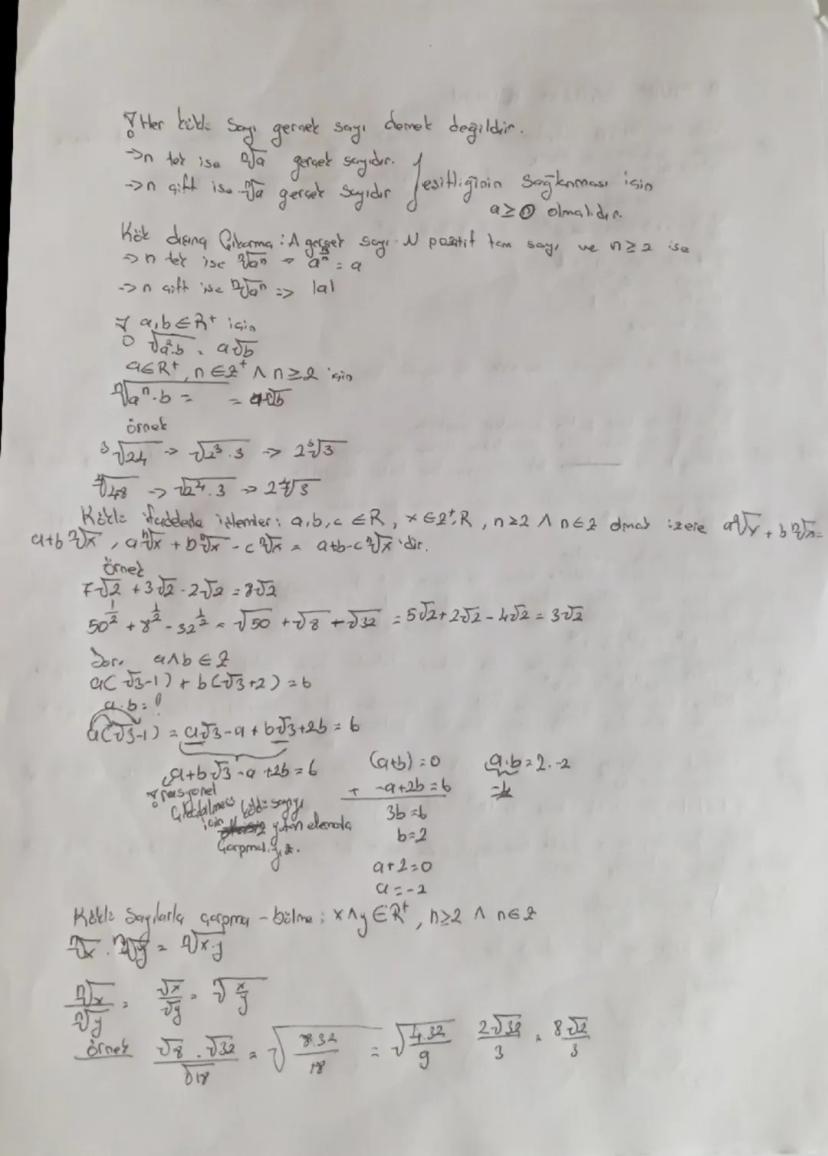 ! Her köklü sayı gerçek sayı demek değildir.
→ n tek ise ⁿ√a gerçek sayıdır.
→ n çift ise ⁿ√a gerçek sayıdır } eşitliğinin sağlanması için
a ≥ 0 olmalıdır.
Kök dışına Çıkarma: A gerçek sayı N pozitif tam sayı ve n ≥ 2 ise
→ n tek ise ⁿ√aⁿ = a = a
→ n çift ise ⁿ√aⁿ => |a|
! a,b ∈ R⁺ için
√a².b = a√b
a ∈ R⁺, n ∈ Z⁺ ∧ n ≥ 2 için
ⁿ√aⁿ.b = = aⁿ√b
örnek
³√24 → √2³.3 → 2³√3
⁴√48 → √2⁴.3 → 2⁴√3
Köklü ifadelerde işlemler: a,b,c ∈ R, x ∈ Z⁺, R, n ≥ 2 ∧ n ∈ Z olmak üzere aⁿ√x + bⁿ√x =
a+b ⁿ√x, aⁿ√x + bⁿ√x - cⁿ√x = a+b-cⁿ√x 'dir.
örnek
7√2 + 3√2 - 2√2 = 8√2
50^½ + 8^½ - 32^½ = √50 + √8 + √32 = 5√2 + 2√2 - 4√2 = 3√2
Sor. a∧b ∈ Z
a(√3-1) + b(√3+2) = 6
a.b = ?
a(√3-1) = a√3 - a + b√3 + 2b = 6
a+b√3 - a + 2b = 6 (a+b) = 0 a.b = 2.-2
! rasyonel + -a+2b = 6
köklü sayıyı 3b = 6
için b = 2
a+2 = 0
a = -2
Köklü Sayılarla çarpma - bölme: x∧y ∈ R⁺, n ≥ 2 ∧ n ∈ Z
ⁿ√x . ⁿ√y = ⁿ√x.y
ⁿ√x / ⁿ√y = √x / √y = √x/y
örnek √8 . √32 / √18 = √8.32/18 = √4.32/9 2√32/3 = 8√2/3